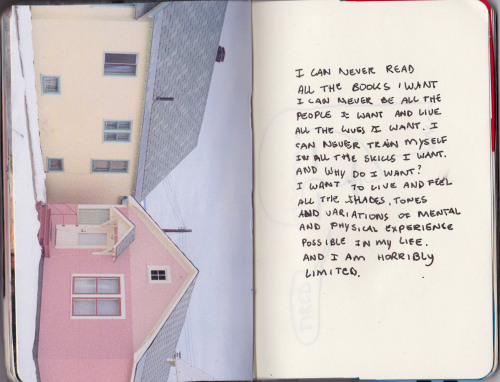 I CAN NEVER READ
ALL THE BOOKS I WANT
I CAN NEVER BE ALL THE
PEOPLE I WANT AND LIVE
ALL THE LIVES I WANT. I
CAN NEVER TRAIN MYSELF
IN ALL THE SKILLS I WANT.
AND WHY DO I WANT?
I WANT TO LIVE AND FEEL
ALL THE SHADES, TONES
AND VARIATIONS OF MENTAL
AND PHYSICAL EXPERIENCE
POSSIBLE IN MY LIFE.
AND I AM HORRIBLY
LIMITED.
TIRED